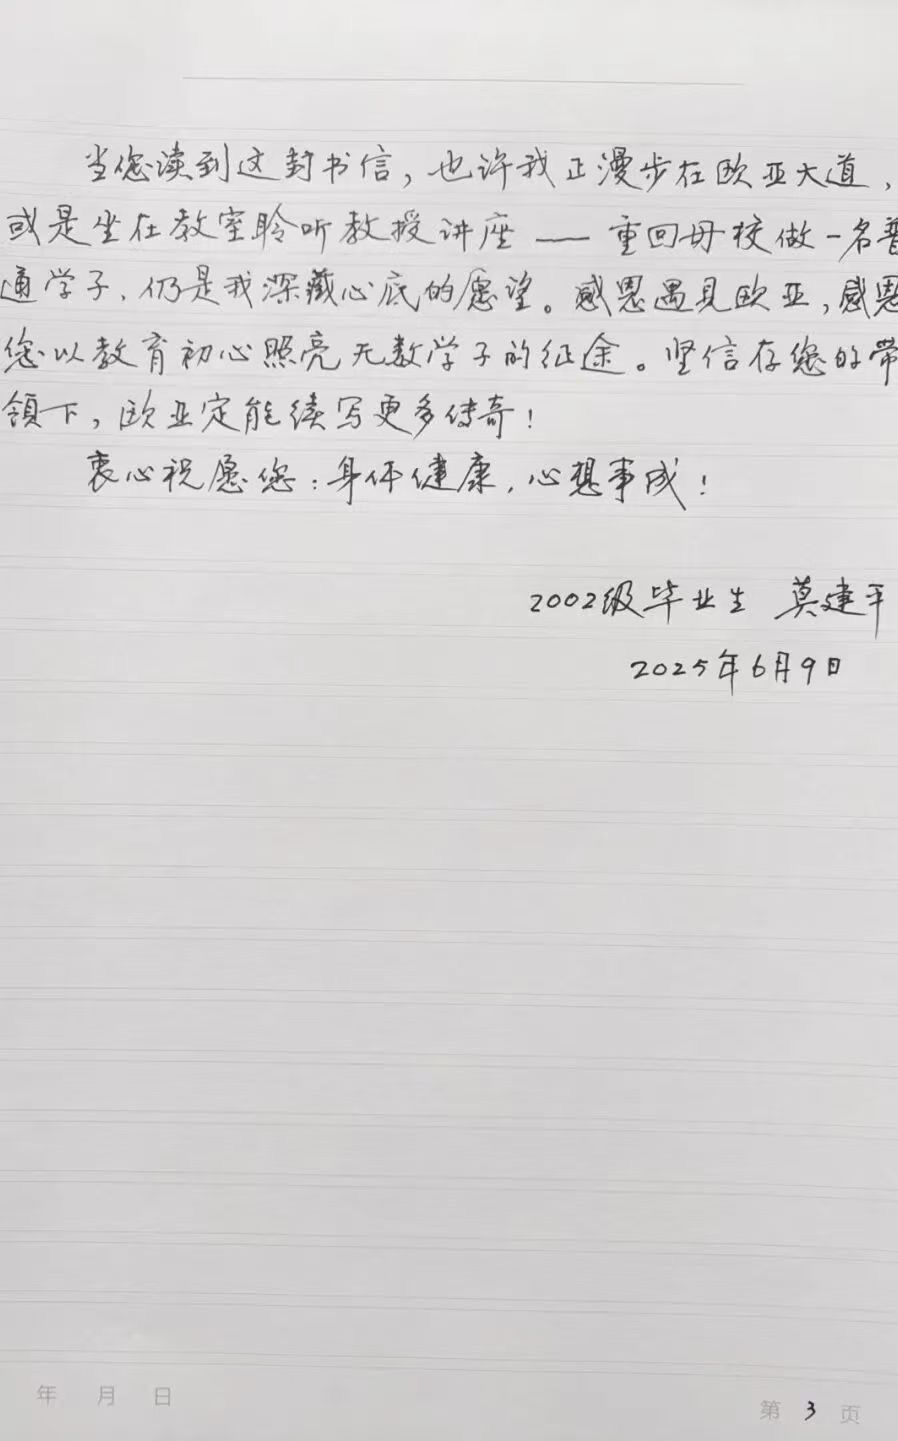 当您读到这封书信，也许我正漫步在欧亚大道，
或是坐在教室聆听教授讲座——重回母校做一名普
通学子，仍是我深藏心底的愿望。感恩遇见欧亚，感恩
您以教育初心照亮无数学子的征途。坚信在您的带
领下，欧亚定能续写更多传奇！
衷心祝愿您：身体健康，心想事成！
2002级毕业生 莫建平
2025年6月9日
年 月 日
第 3 页